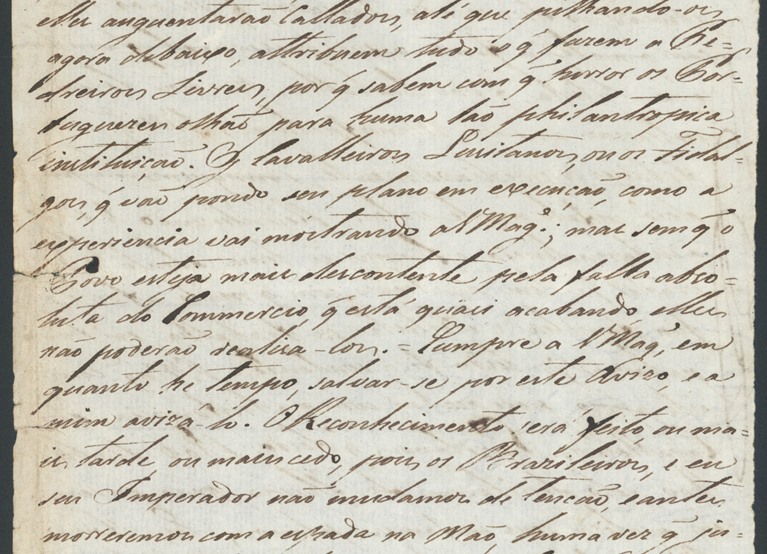 elles augmentarão Callados, até que pilhando-os
agora debaixo, attribuem tudo o q̃ fazem a Pe=
dreiros Livres, por q̃ sabem com q̃ horror os Por-
tuguezes olhão para huma tão philantropica
instituição. Os Cavalleiros Lusitanos, ou os Fidal-
gos, q̃ vão pondo seu plano em execução, como a
experiencia vai mostrando a V Mag.e; mas sem q̃ o
Povo esteja mais descontente pela falta abso-
luta do Commercio, q̃ está quasi acabando elles
não poderão realiza-los. = Cumpre a V Mag.e, em
quanto he tempo, salvar-se por este Avizo, e a
mim aviza-lo. O Reconhecimento será feito, ou ma=
is tarde, ou mais cedo, pois os Brazileiros, e eu
seu Imperador não mudamos de tenção, e antes
morreremos com a espada na Mão, huma vez q̃ ju-